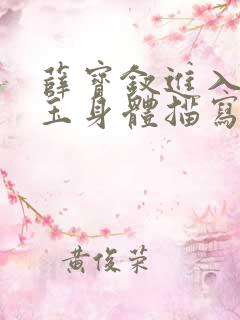 薛寶釵進入
玉身體描寫
黃俊榮